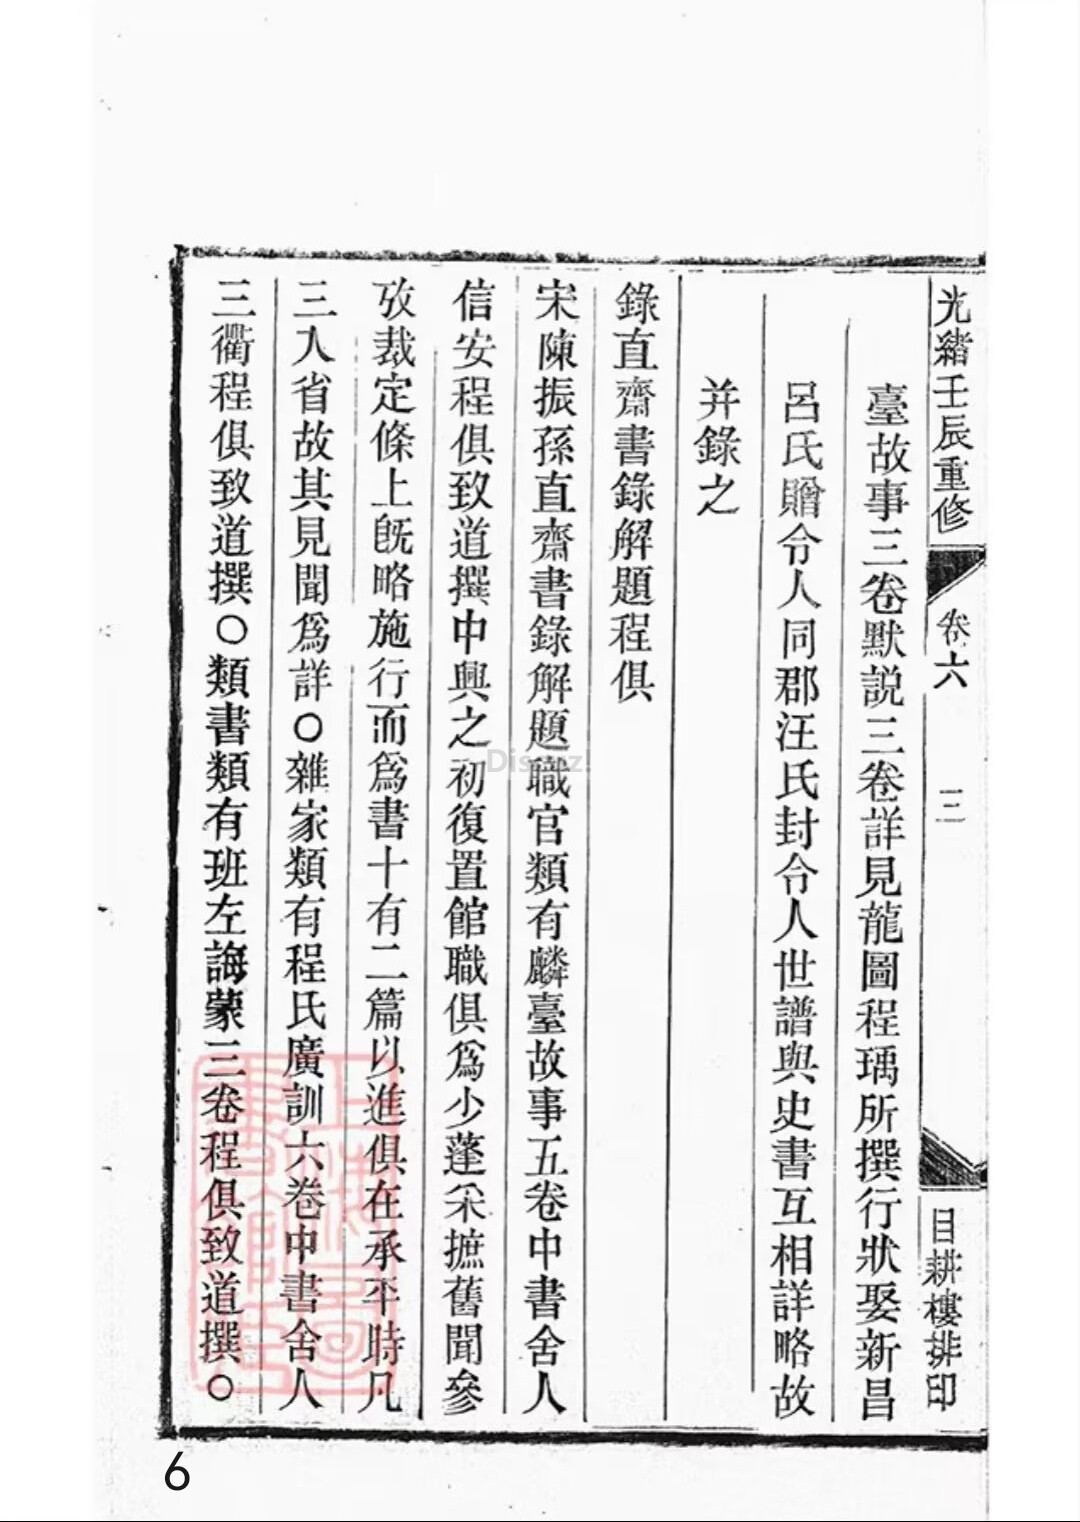 光緒壬辰重修
卷六
三
目耕樓排印
臺故事三卷默説三卷詳見龍圖程瑀所撰行狀娶新昌
呂氏贈令人同郡汪氏封令人世譜與史書互相詳略故
并錄之
錄直齋書錄解題程俱
宋陳振孫直齋書錄解題職官類有麟臺故事五卷中書舍人
信安程俱致道撰中興之初復置館職俱爲少蓬采摭舊聞參
攷裁定條上旣略施行而爲書十有二篇以進俱在承平時凡
三入省故其見聞爲詳〇雜家類有程氏廣訓六卷中書舍人
三衢程俱致道撰〇類書類有班左誨蒙三卷程俱致道撰〇
6